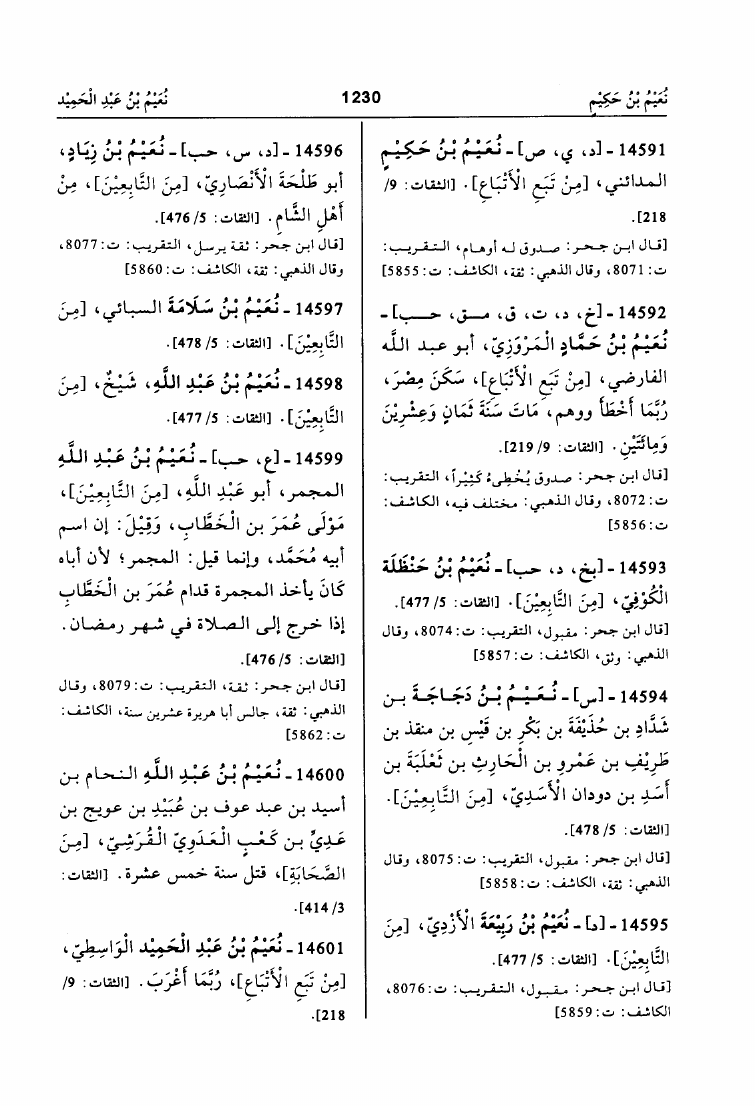 نُعَيْمُ بْنُ حَكِيْمٍ
1230
نُعَيْمُ بْنُ عَبْدِ الْحَمِيْد
14591 - [د، ي، ص] - نُعَيْمُ بْنُ حَكِيْمٍ
المدائني، [مِنْ تَبَعِ الْأَتْبَاعِ]. [الثقات: 9/
218].
[قال ابن جحر: صدوق له أوهام، التقريب:
ت: 8071، وقال الذهبي: ثقة، الكاشف: ت: 5855]
14592 - [خ، د، ت، ق، مـق، حـب] -
نُعَيْمُ بْنُ حَمَّادٍ الْمَرْوَزِيّ، أبو عبد الله
الفارضي، [مِنْ تَبَعِ الْأَتْبَاعِ]، سَكَنَ مِصْرَ،
رُبَّمَا أَخْطَأَ ووهم، مَاتَ سَنَةَ ثَمَانٍ وَعِشْرِيْنَ
وَمِائَتَيْنِ. [الثقات: 9/ 219].
[قال ابن جحر: صدوق يُخْطِىءُ كَثِيْراً، التقريب:
ت: 8072، وقال الذهبي: مختلف فيه، الكاشف:
ت: 5856]
14593 - [بخ، د، حب] - نُعَيْمُ بْنُ حَنْظَلَة
الْكُوْفِيّ، [مِنَ التَّابِعِيْنَ]. [الثقات: 5/ 477].
[قال ابن جحر: مقبول، التقريب: ت: 8074، وقال
الذهبي: وثق، الكاشف: ت: 5857]
14594 - [س] - نُعَيْمُ بْنُ دَجَاجَةَ بن
شَدَّادِ بن حُذَيْفَةَ بن بَكْرِ بن قَيْسِ بن منقذ بن
طَرِيْفِ بن عَمْرِو بن الْحَارِثِ بن ثَعْلَبَةَ بن
أَسَدِ بن دودان الْأَسَدِيّ، [مِنَ التَّابِعِيْنَ].
[الثقات: 5/ 478].
[قال ابن جحر: مقبول، التقريب: ت: 8075، وقال
الذهبي: ثقة، الكاشف: ت: 5858]
14595 - [د] - نُعَيْمُ بْنُ رَبِيْعَةَ الْأَزْدِيّ، [مِنَ
التَّابِعِيْنَ]. [الثقات: 5/ 477].
[قال ابن جحر: مقبول، التقريب: ت: 8076،
الكاشف: ت: 5859]
14596 - [د، س، حب] - نُعَيْمُ بْنُ زِيَادٍ،
أبو طَلْحَةَ الْأَنْصَارِيّ، [مِنَ التَّابِعِيْنَ]، مِنْ
أَهْلِ الشَّامِ. [الثقات: 5/ 476].
[قال ابن جحر: ثقة يرسل، التقريب: ت: 8077،
وقال الذهبي: ثقة، الكاشف: ت: 5860]
14597 - نُعَيْمُ بْنُ سَلَامَةَ السبائي، [مِنَ
التَّابِعِيْنَ]. [الثقات: 5/ 478].
14598 - نُعَيْمُ بْنُ عَبْدِ اللَّهِ، شَيْخٌ، [مِنَ
التَّابِعِيْنَ]. [الثقات: 5/ 477].
14599 - [ع، حب] - نُعَيْمُ بْنُ عَبْدِ اللَّهِ
المجمر، أبو عَبْدِ اللَّهِ، [مِنَ التَّابِعِيْنَ]،
مَوْلَى عُمَرَ بن الْخَطَّابِ، وَقِيْلَ: إن اسم
أبيه مُحَمَّد، وإنما قيل: المجمر؛ لأن أباه
كَانَ يأخذ المجمرة قدام عُمَرَ بن الْخَطَّابِ
إذا خرج إلى الصلاة في شهر رمضان.
[الثقات: 5/ 476].
[قال ابن جحر: ثقة، التقريب: ت: 8079، وقال
الذهبي: ثقة، جالس أبا هريرة عشرين سنة، الكاشف:
ت: 5862]
14600 - نُعَيْمُ بْنُ عَبْدِ اللَّهِ النحام بن
أسيد بن عبد عوف بن عُبَيْدِ بن عويج بن
عَدِيِّ بن كَعْبٍ الْعَدَوِيّ الْقُرَشِيّ، [مِنَ
الصَّحَابَةِ]، قتل سنة خمس عشرة. [الثقات:
3/ 414].
14601 - نُعَيْمُ بْنُ عَبْدِ الْحَمِيْد الْوَاسِطِيّ،
[مِنْ تَبَعِ الْأَتْبَاعِ]، رُبَّمَا أَغْرَبَ. [الثقات: 9/
218].